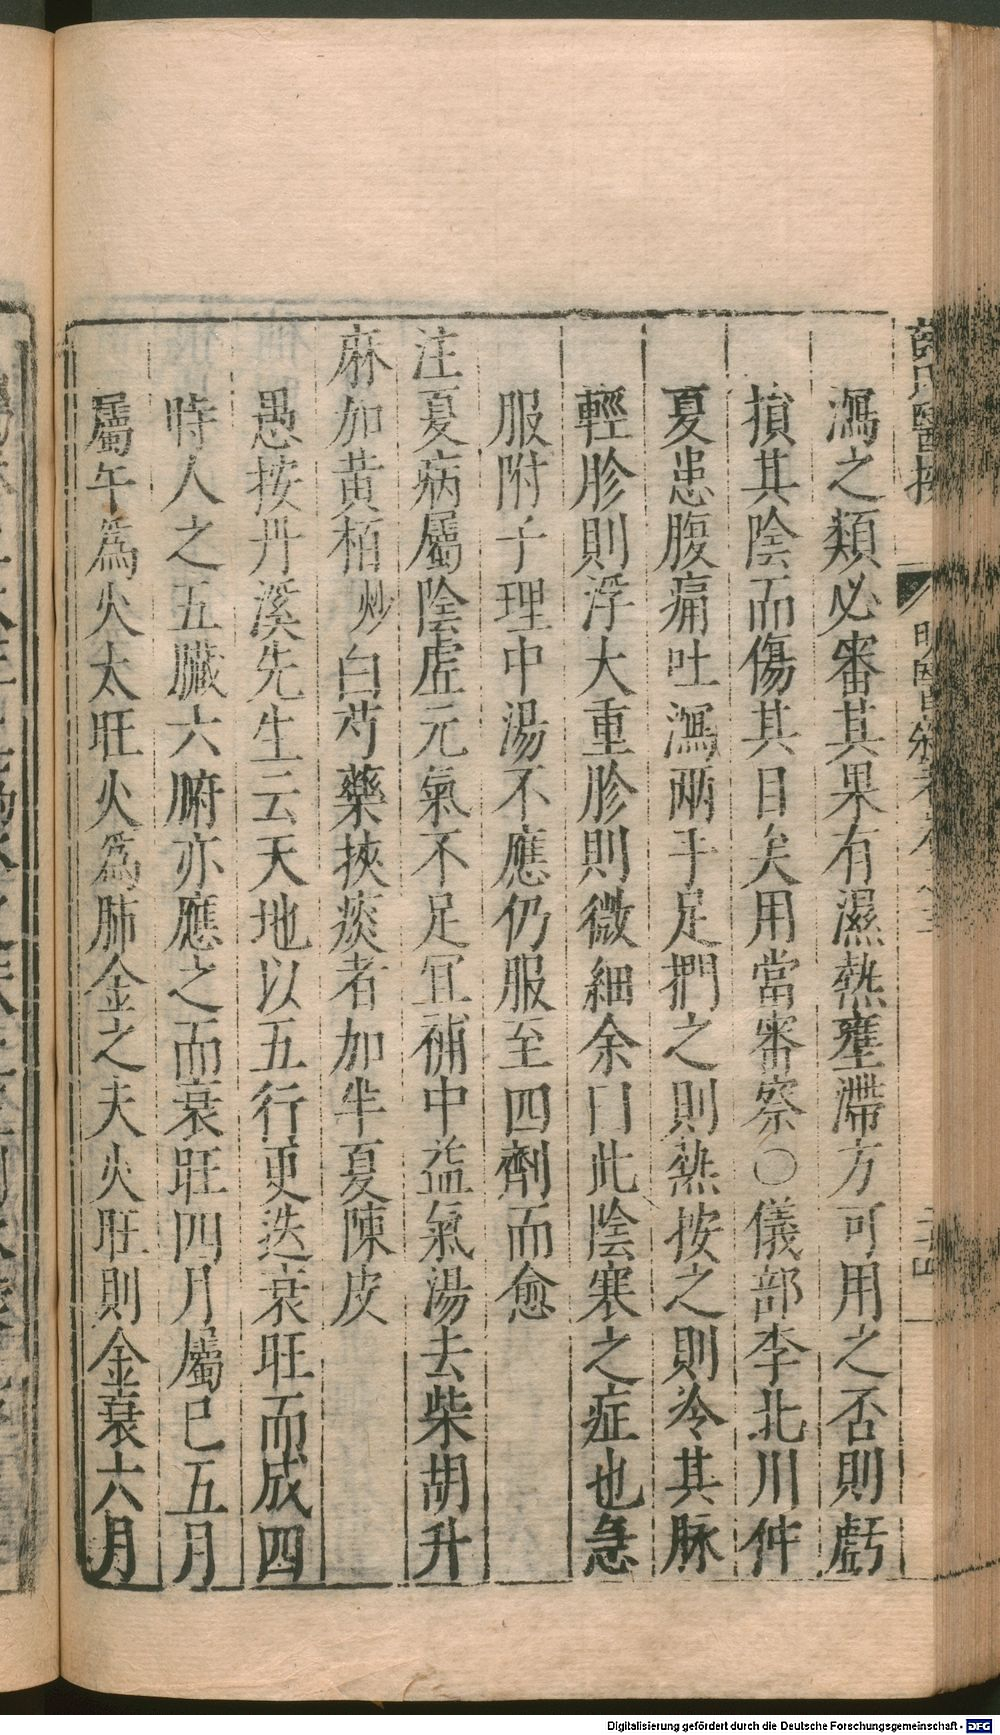 薛氏醫按
明醫雜著卷
二十四
瀉之類必審其果有濕熱壅滯方可用之否則虧
損其陰而傷其目矣用當審察○儀部李北川仲
夏患腹痛吐瀉兩手足捫之則熱按之則冷其脉
輕胗則浮大重胗則微細余曰此陰寒之症也急
服附子理中湯不應仍服至四劑而愈
注夏病屬陰虛元氣不足宜補中益氣湯去柴胡升
麻加黃栢炒白芍藥挾痰者加半夏陳皮
愚按丹溪先生云天地以五行更迭衰旺而成四
時人之五臟六腑亦應之而衰旺四月屬巳五月
屬午為火太旺火為肺金之夫火旺則金衰六月
Digitalisierung gefördert durch die Deutsche Forschungsgemeinschaft - DFG